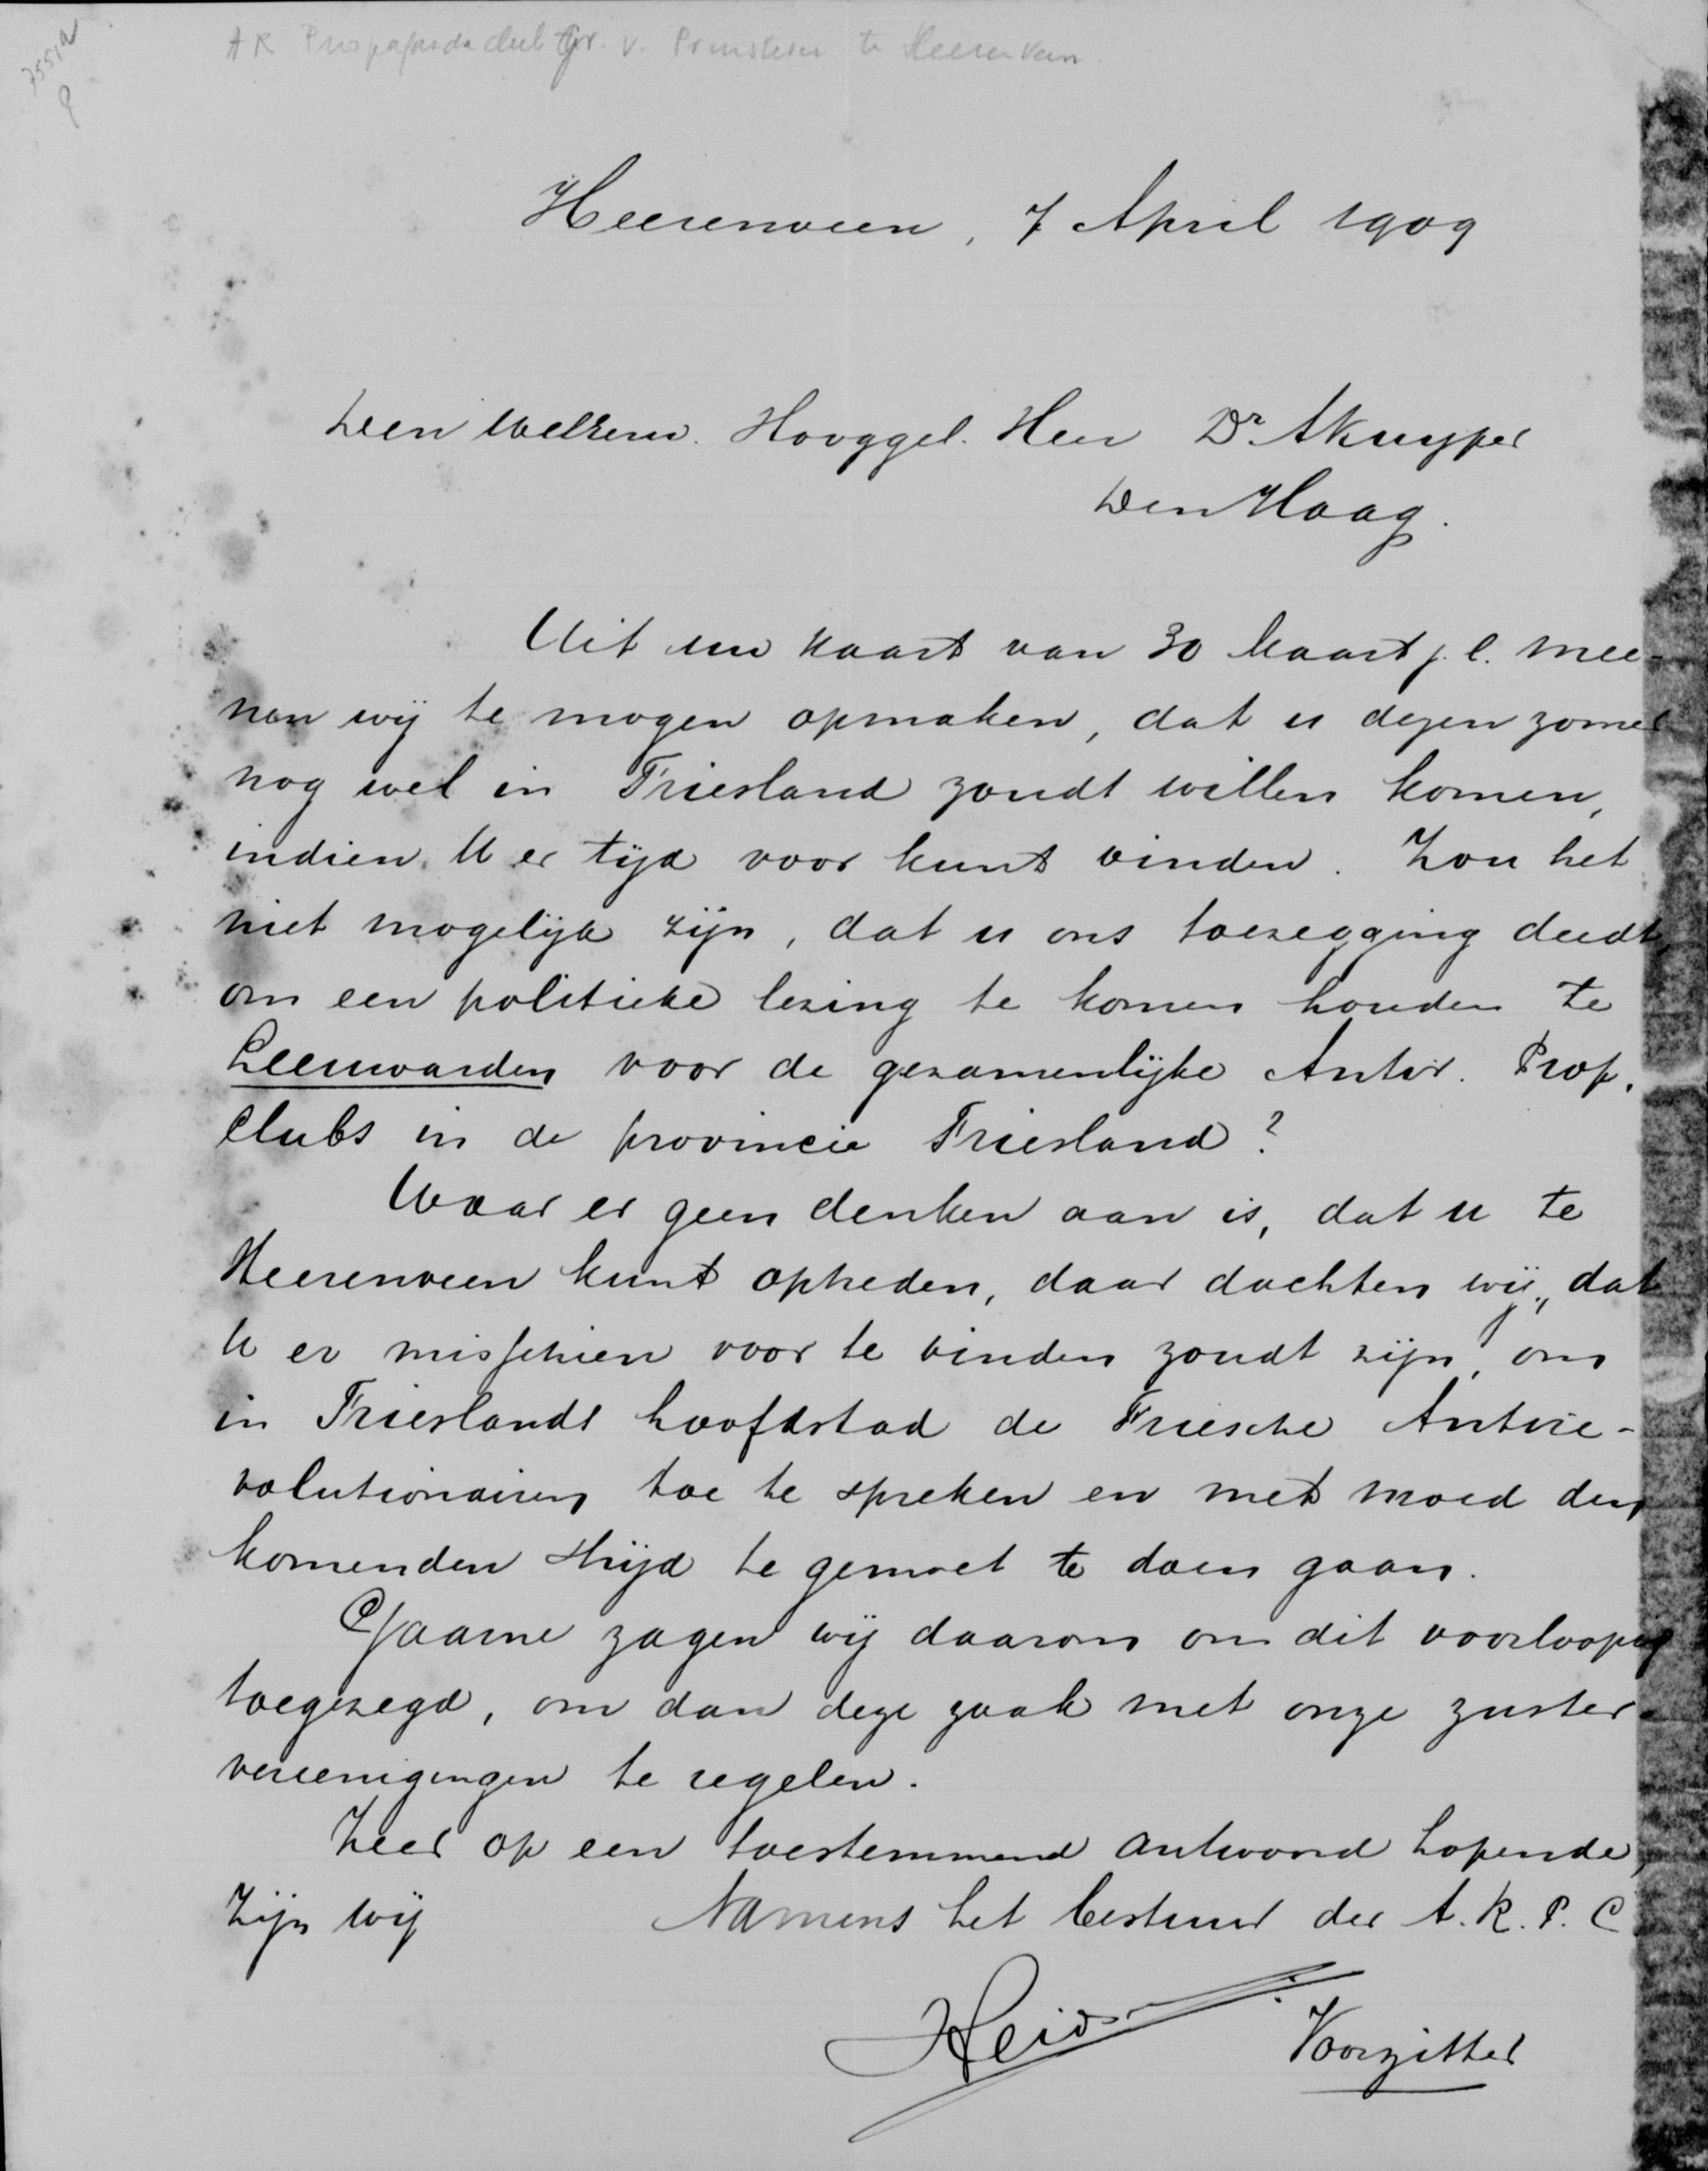 7551a
A R Propaganda club Gr. v. Prinsterer te Heerenveen.
Heerenveen, 7 April 1909
Den Weleerw. Hooggel. Heer Dr. A Kuyper
Den Haag.
Uit uw kaart van 30 Maart j.l. mee-
nen wij te mogen opmaken, dat u dezen zomer
nog wel in Friesland zoudt willen komen,
indien U er tijd voor kunt vinden. Zou het
niet mogelijk zijn, dat u ons toezegging deedt,
om een politieke lezing te komen houden te
Leeuwarden voor de gezamenlijke Antir. Prop.
Clubs in de provincie Friesland?
Waar er geen denken aan is, dat u te
Heerenveen kunt optreden, daar dachten wij, dat
U er misschien voor te vinden zoudt zijn, om
in Frieslands hoofdstad de Friesche Antire-
volutionairen toe te spreken en met moed den
komenden strijd te gemoet te doen gaan.
Gaarne zagen wij daarom ons dit voorloopig
toegezegd, om dan deze zaak met onze zuster-
vereenigingen te regelen.
Zeer op een toestemmend antwoord hopende,
Zijn wij Namens het bestuur der A. R. P. C
Voorzitter